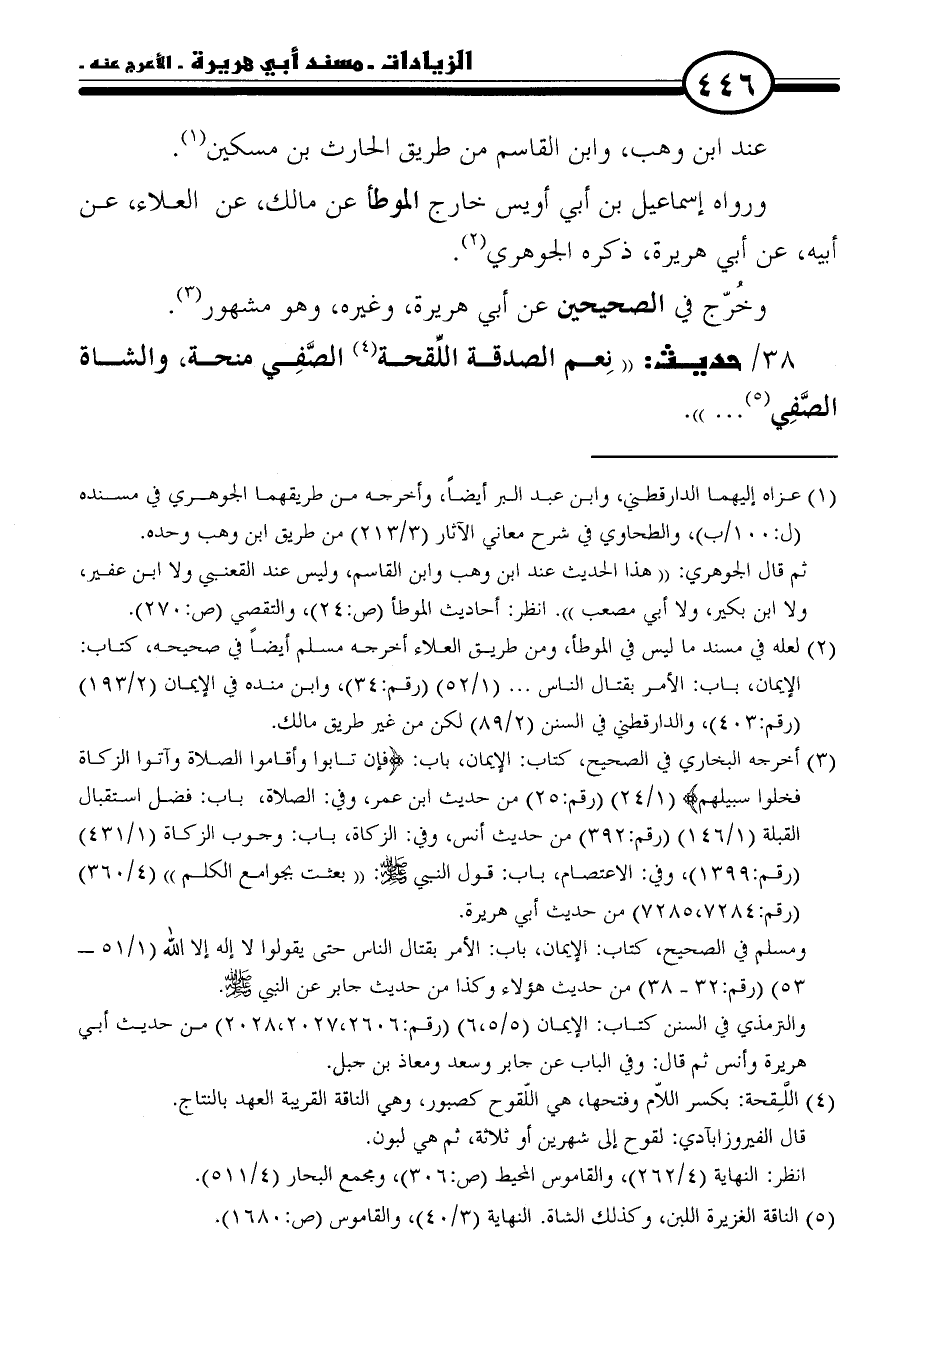 ٤٤٦ الزيادات ـ مسند أبي هريرة ـ الأعرج عنه ـ
عند ابن وهب، وابن القاسم من طريق الحارث بن مسكين(١).
ورواه إسماعيل بن أبي أويس خارج الموطأ عن مالك، عن العلاء، عن
أبيه، عن أبي هريرة، ذكره الجوهري(٢).
وخُرّج في الصحيحين عن أبي هريرة، وغيره، وهو مشهور(٣).
٣٨/ حديث: (( نِعم الصدقة اللِّقحة(٤) الصَّفِي منحة، والشاة
الصَّفِي(٥)... )).
(١) عزاه إليهما الدارقطني، وابن عبد البر أيضاً، وأخرجه من طريقهما الجوهري في مسنده
(ل:١٠٠/ب)، والطحاوي في شرح معاني الآثار (٢١٣/٣) من طريق ابن وهب وحده.
ثم قال الجوهري: (( هذا الحديث عند ابن وهب وابن القاسم، وليس عند القعنبي ولا ابن عفير،
ولا ابن بكير، ولا أبي مصعب )). انظر: أحاديث الموطأ (ص:٢٤)، والتقصي (ص:٢٧٠).
(٢) لعله في مسند ما ليس في الموطأ، ومن طريق العلاء أخرجه مسلم أيضاً في صحيحه، كتاب:
الإيمان، باب: الأمر بقتال الناس ... (٥٢/١) (رقم:٣٤)، وابن منده في الإيمان (١٩٣/٢)
(رقم:٤٠٣)، والدارقطني في السنن (٨٩/٢) لكن من غير طريق مالك.
(٣) أخرجه البخاري في الصحيح، كتاب: الإيمان، باب: ﴿فإن تابوا وأقاموا الصلاة وآتوا الزكاة
فخلوا سبيلهم﴾ (٢٤/١) (رقم:٢٥) من حديث ابن عمر، وفي: الصلاة، باب: فضل استقبال
القبلة (١٤٦/١) (رقم:٣٩٢) من حديث أنس، وفي: الزكاة، باب: وجوب الزكاة (٤٣١/١)
(رقم:١٣٩٩)، وفي: الاعتصام، باب: قول النبي ﷺ: (( بعثت بجوامع الكلم )) (٣٦٠/٤)
(رقم:٧٢٨٥،٧٢٨٤) من حديث أبي هريرة.
ومسلم في الصحيح، كتاب: الإيمان، باب: الأمر بقتال الناس حتى يقولوا لا إله إلا الله (٥١/١ ـ
٥٣) (رقم:٣٢ ـ ٣٨) من حديث هؤلاء وكذا من حديث جابر عن النبي ﷺ.
والترمذي في السنن كتاب: الإيمان (٦،٥/٥) (رقم:٢٠٢٨،٢٠٢٧،٢٦٠٦) من حديث أبي
هريرة وأنس ثم قال: وفي الباب عن جابر وسعد ومعاذ بن جبل.
(٤) اللَّقِحة: بكسر اللاّم وفتحها، هي اللّقوح كصبور، وهي الناقة القريبة العهد بالنتاج.
قال الفيروزابآدي: لقوح إلى شهرين أو ثلاثة، ثم هي لبون.
انظر: النهاية (٢٦٢/٤)، والقاموس المحيط (ص:٣٠٦)، ومجمع البحار (٥١١/٤).
(٥) الناقة الغزيرة اللبن، وكذلك الشاة. النهاية (٤٠/٣)، والقاموس (ص:١٦٨٠).